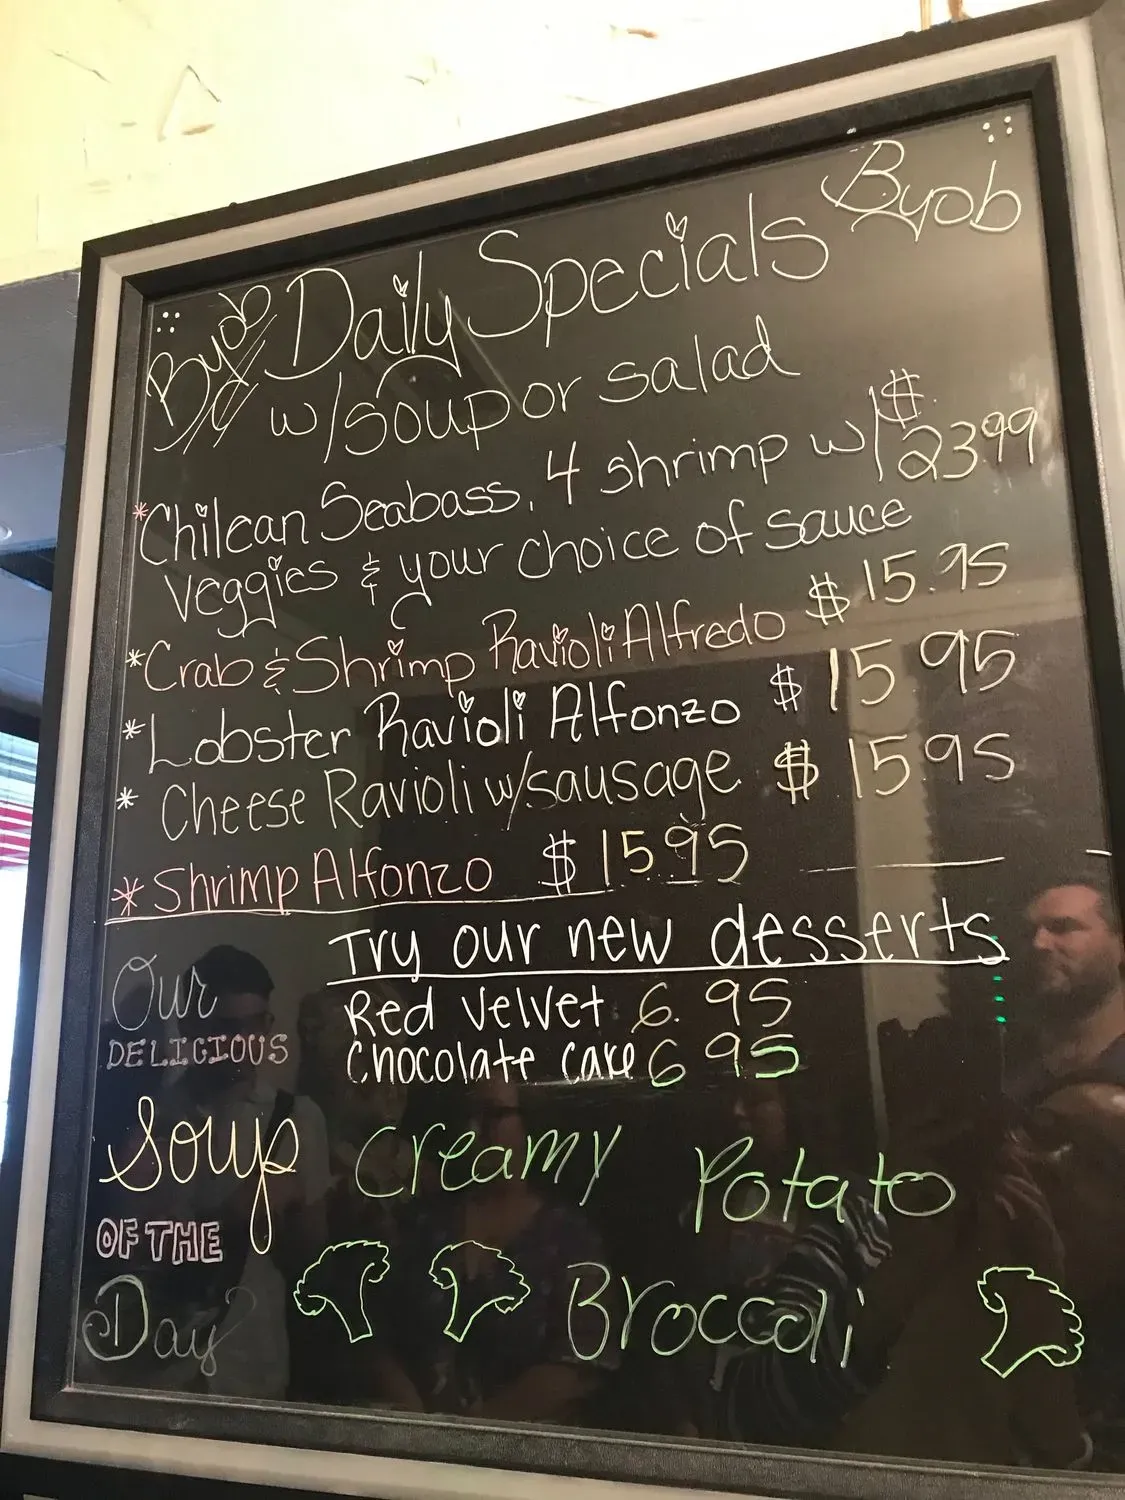 Byob Daily Specials Byob
w/soup or salad
*Chilean Seabass, 4 shrimp w/ $23.99
Veggies & your choice of sauce
*Crab & Shrimp Ravioli Alfredo $15.95
*Lobster Ravioli Alfonzo $15.95
*Cheese Ravioli w/sausage $15.95
*Shrimp Alfonzo $15.95
Try our new desserts
Red Velvet 6.95
Chocolate Cake 6.95
Our
DELICIOUS
Soup
OF THE
Day
Creamy Potato
Broccoli